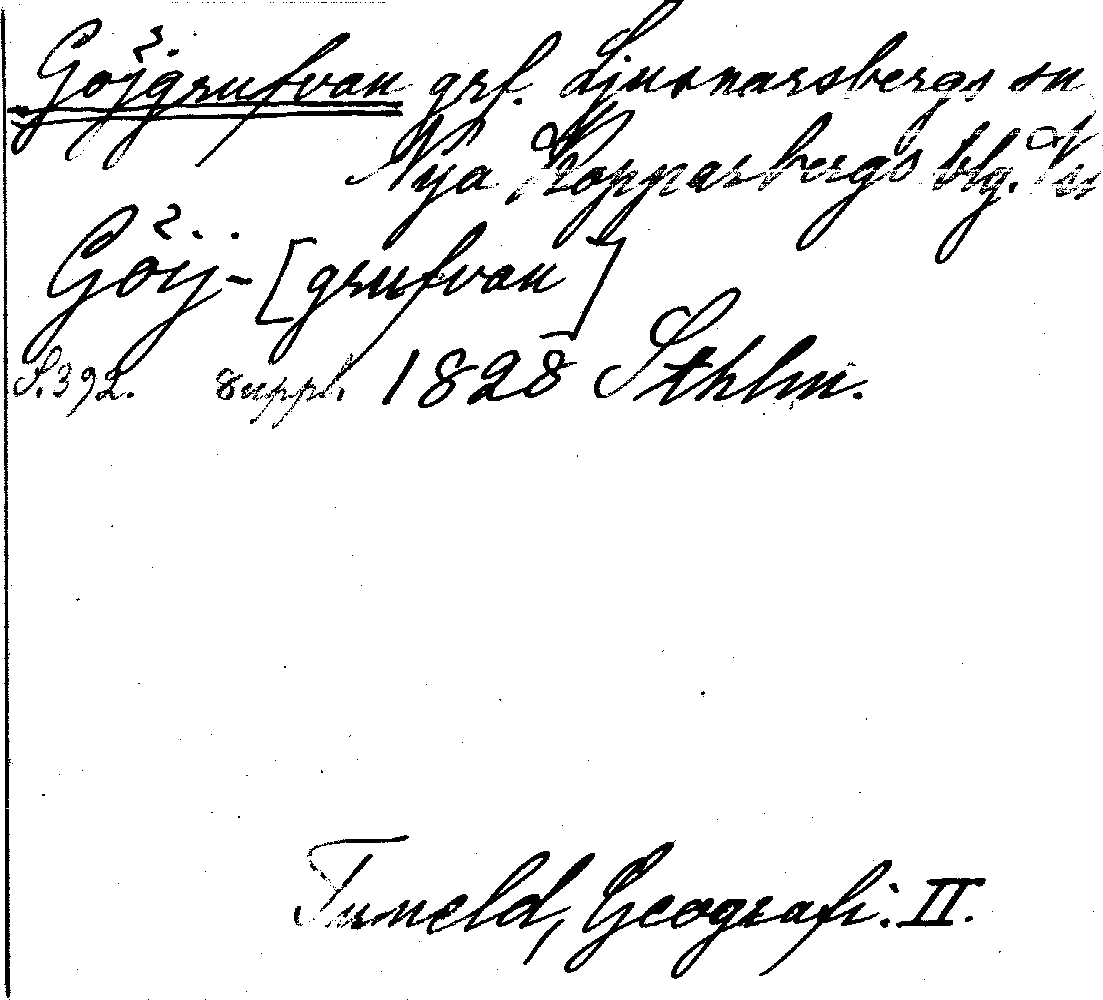 Gojgrufvan grf. Ljusnarsbergs sn
Nya Kopparbergs blg.
Göij-[grufvan]
S.392. suppl. 1828 Sthlm.
Tuneld, Geografi. II.